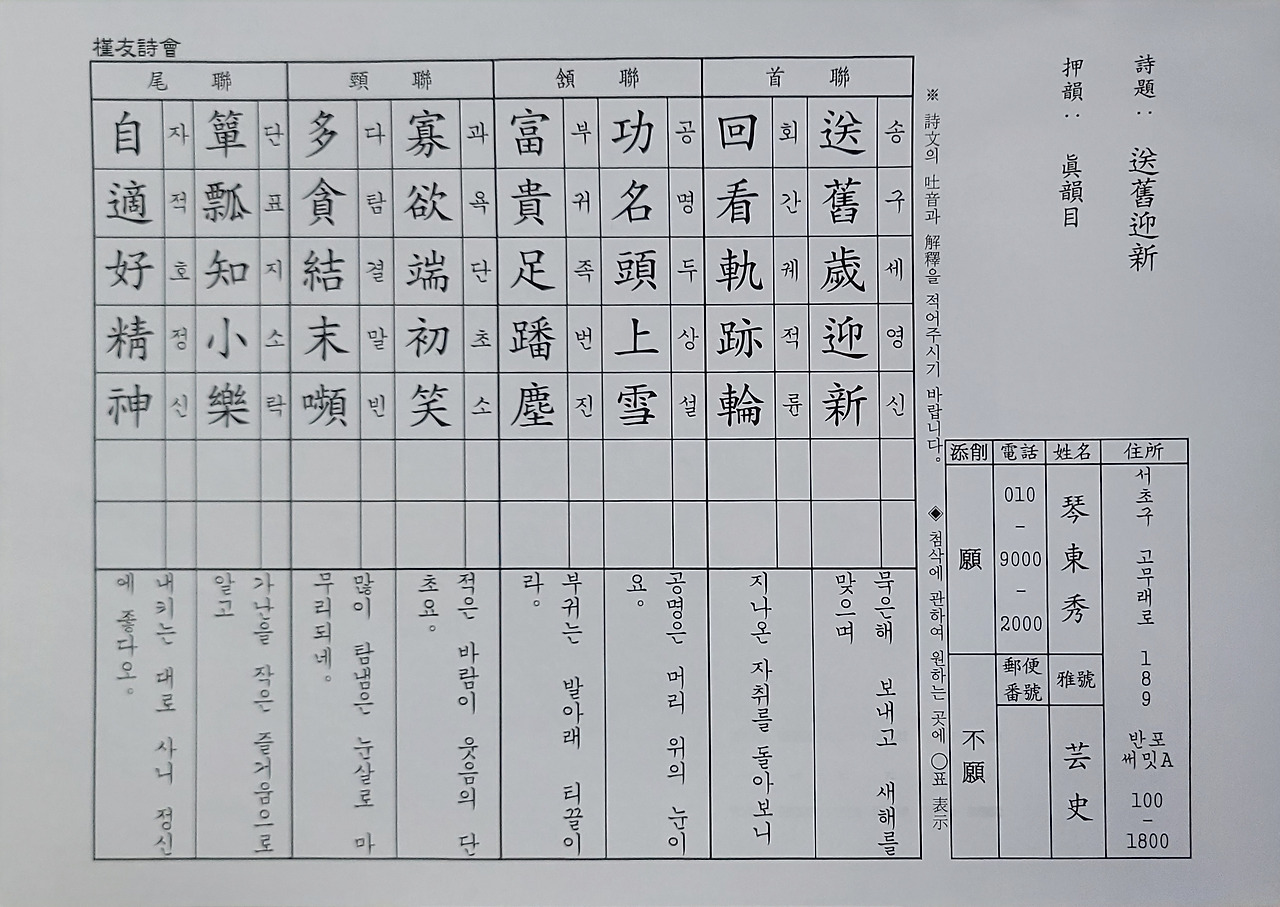 槿友詩會
詩題 : 送舊迎新
押韻 : 眞韻目
住所
서초구 고무래로 189 반포써밋A 100-1800
姓名
琴東秀
雅號
芸史
電話
010-9000-2000
郵便番號
添削
願
不願
※ 詩文의 吐音과 解釋을 적어주시기 바랍니다. ◈ 첨삭에 관하여 원하는 곳에 ○표 表示
首聯
送舊歲迎新
송구세영신
묵은해 보내고 새해를 맞으며
回看軌跡輪
회간궤적륜
지나온 자취를 돌아보니
頷聯
功名頭上雪
공명두상설
공명은 머리 위의 눈이요。
富貴足蹯塵
부귀족번진
부귀는 발아래 티끌이라。
頸聯
寡欲端初笑
과욕단초소
적은 바람이 웃음의 단초요。
多貪結末嚬
다탐결말빈
많이 탐냄은 눈살로 마무리되네。
尾聯
簞瓢知小樂
단표지소락
가난을 작은 즐거움으로 알고
自適好精神
자적호정신
내키는 대로 사니 정신에 좋다오。